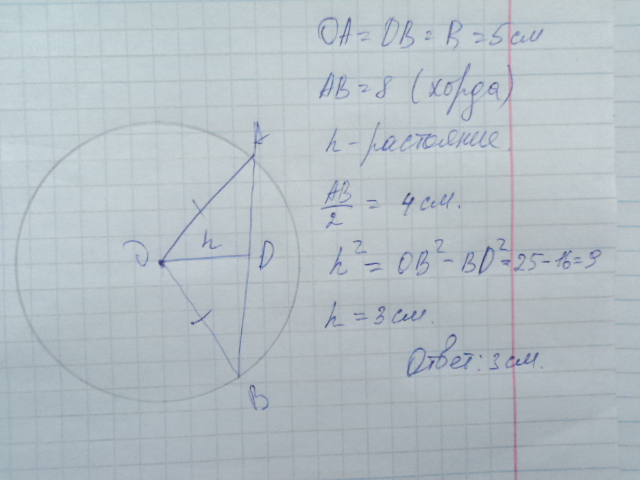 OA = OB = R = 5 см
AB = 8 (хорда)
h - растояние
AB/2 = 4 см.
h² = OB² - BD² = 25 - 16 = 9
h = 3 см.
Ответ: 3 см.
A
O h D
B